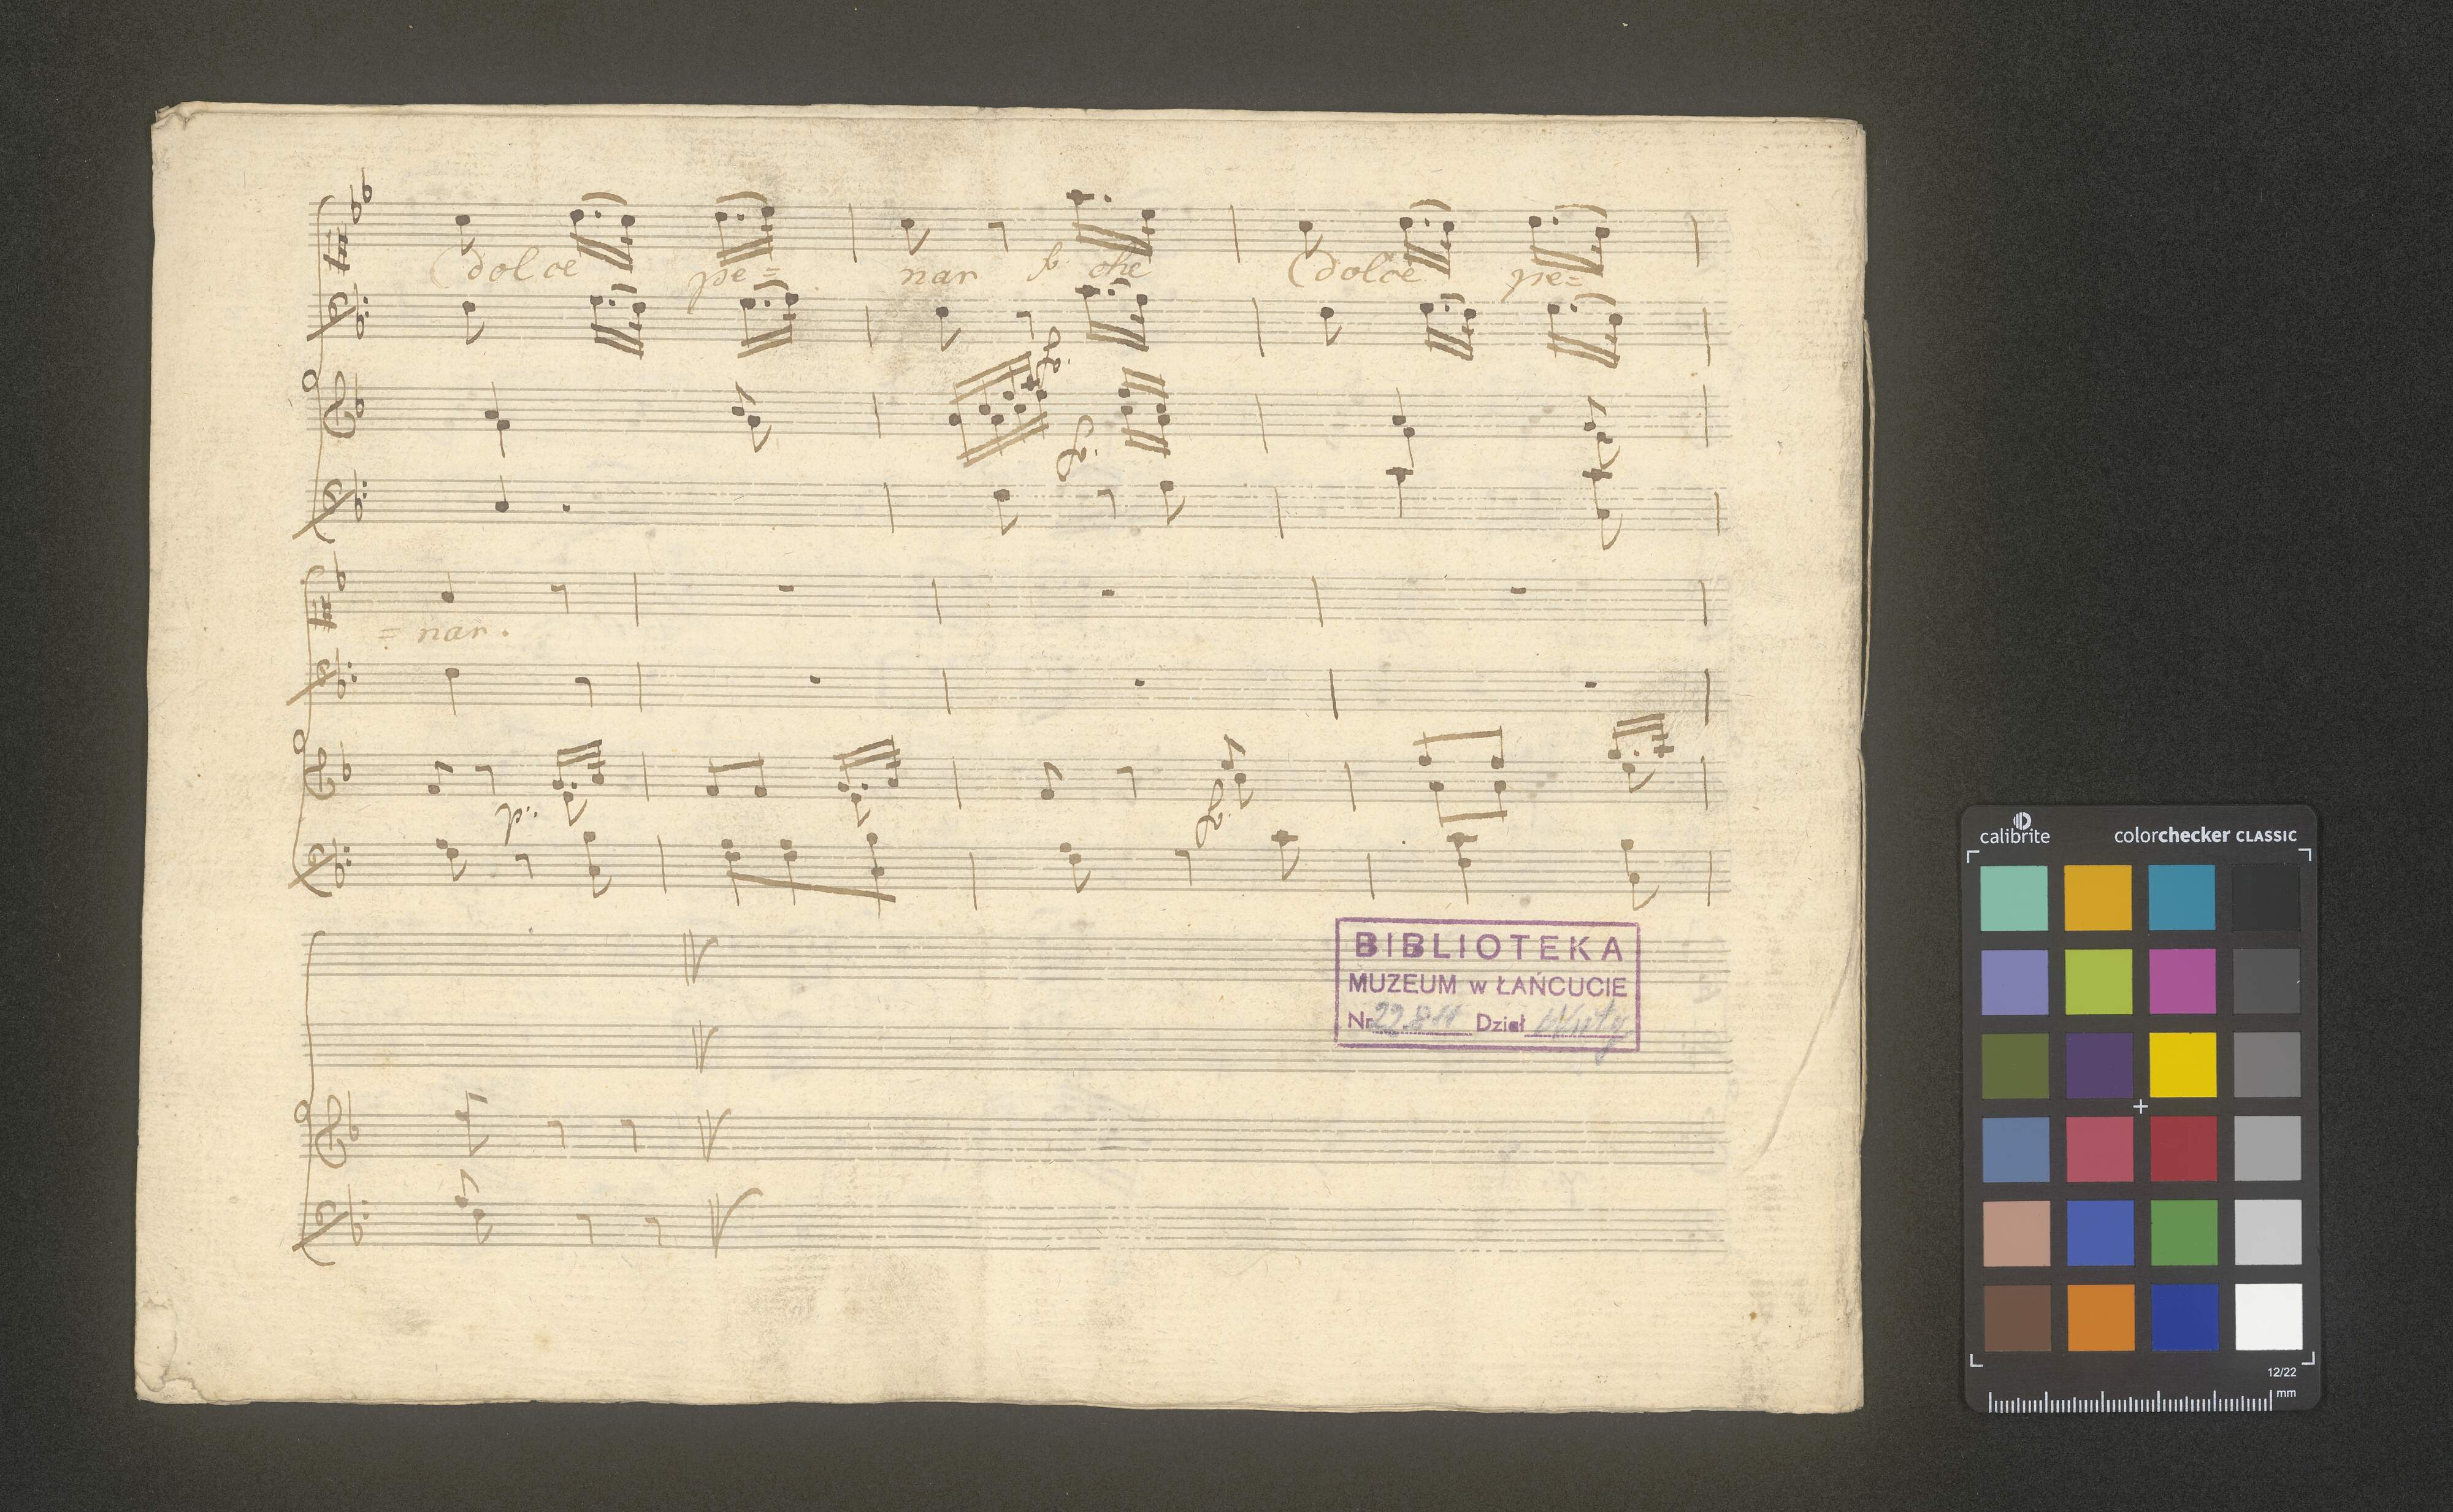 dolce pe= nar fo che dolce pe=
= nar.
p:
BIBLIOTEKA
MUZEUM w ŁAŃCUCIE
Nr 22.811 Dział Nuty
calibrite colorchecker CLASSIC
12/22
mm